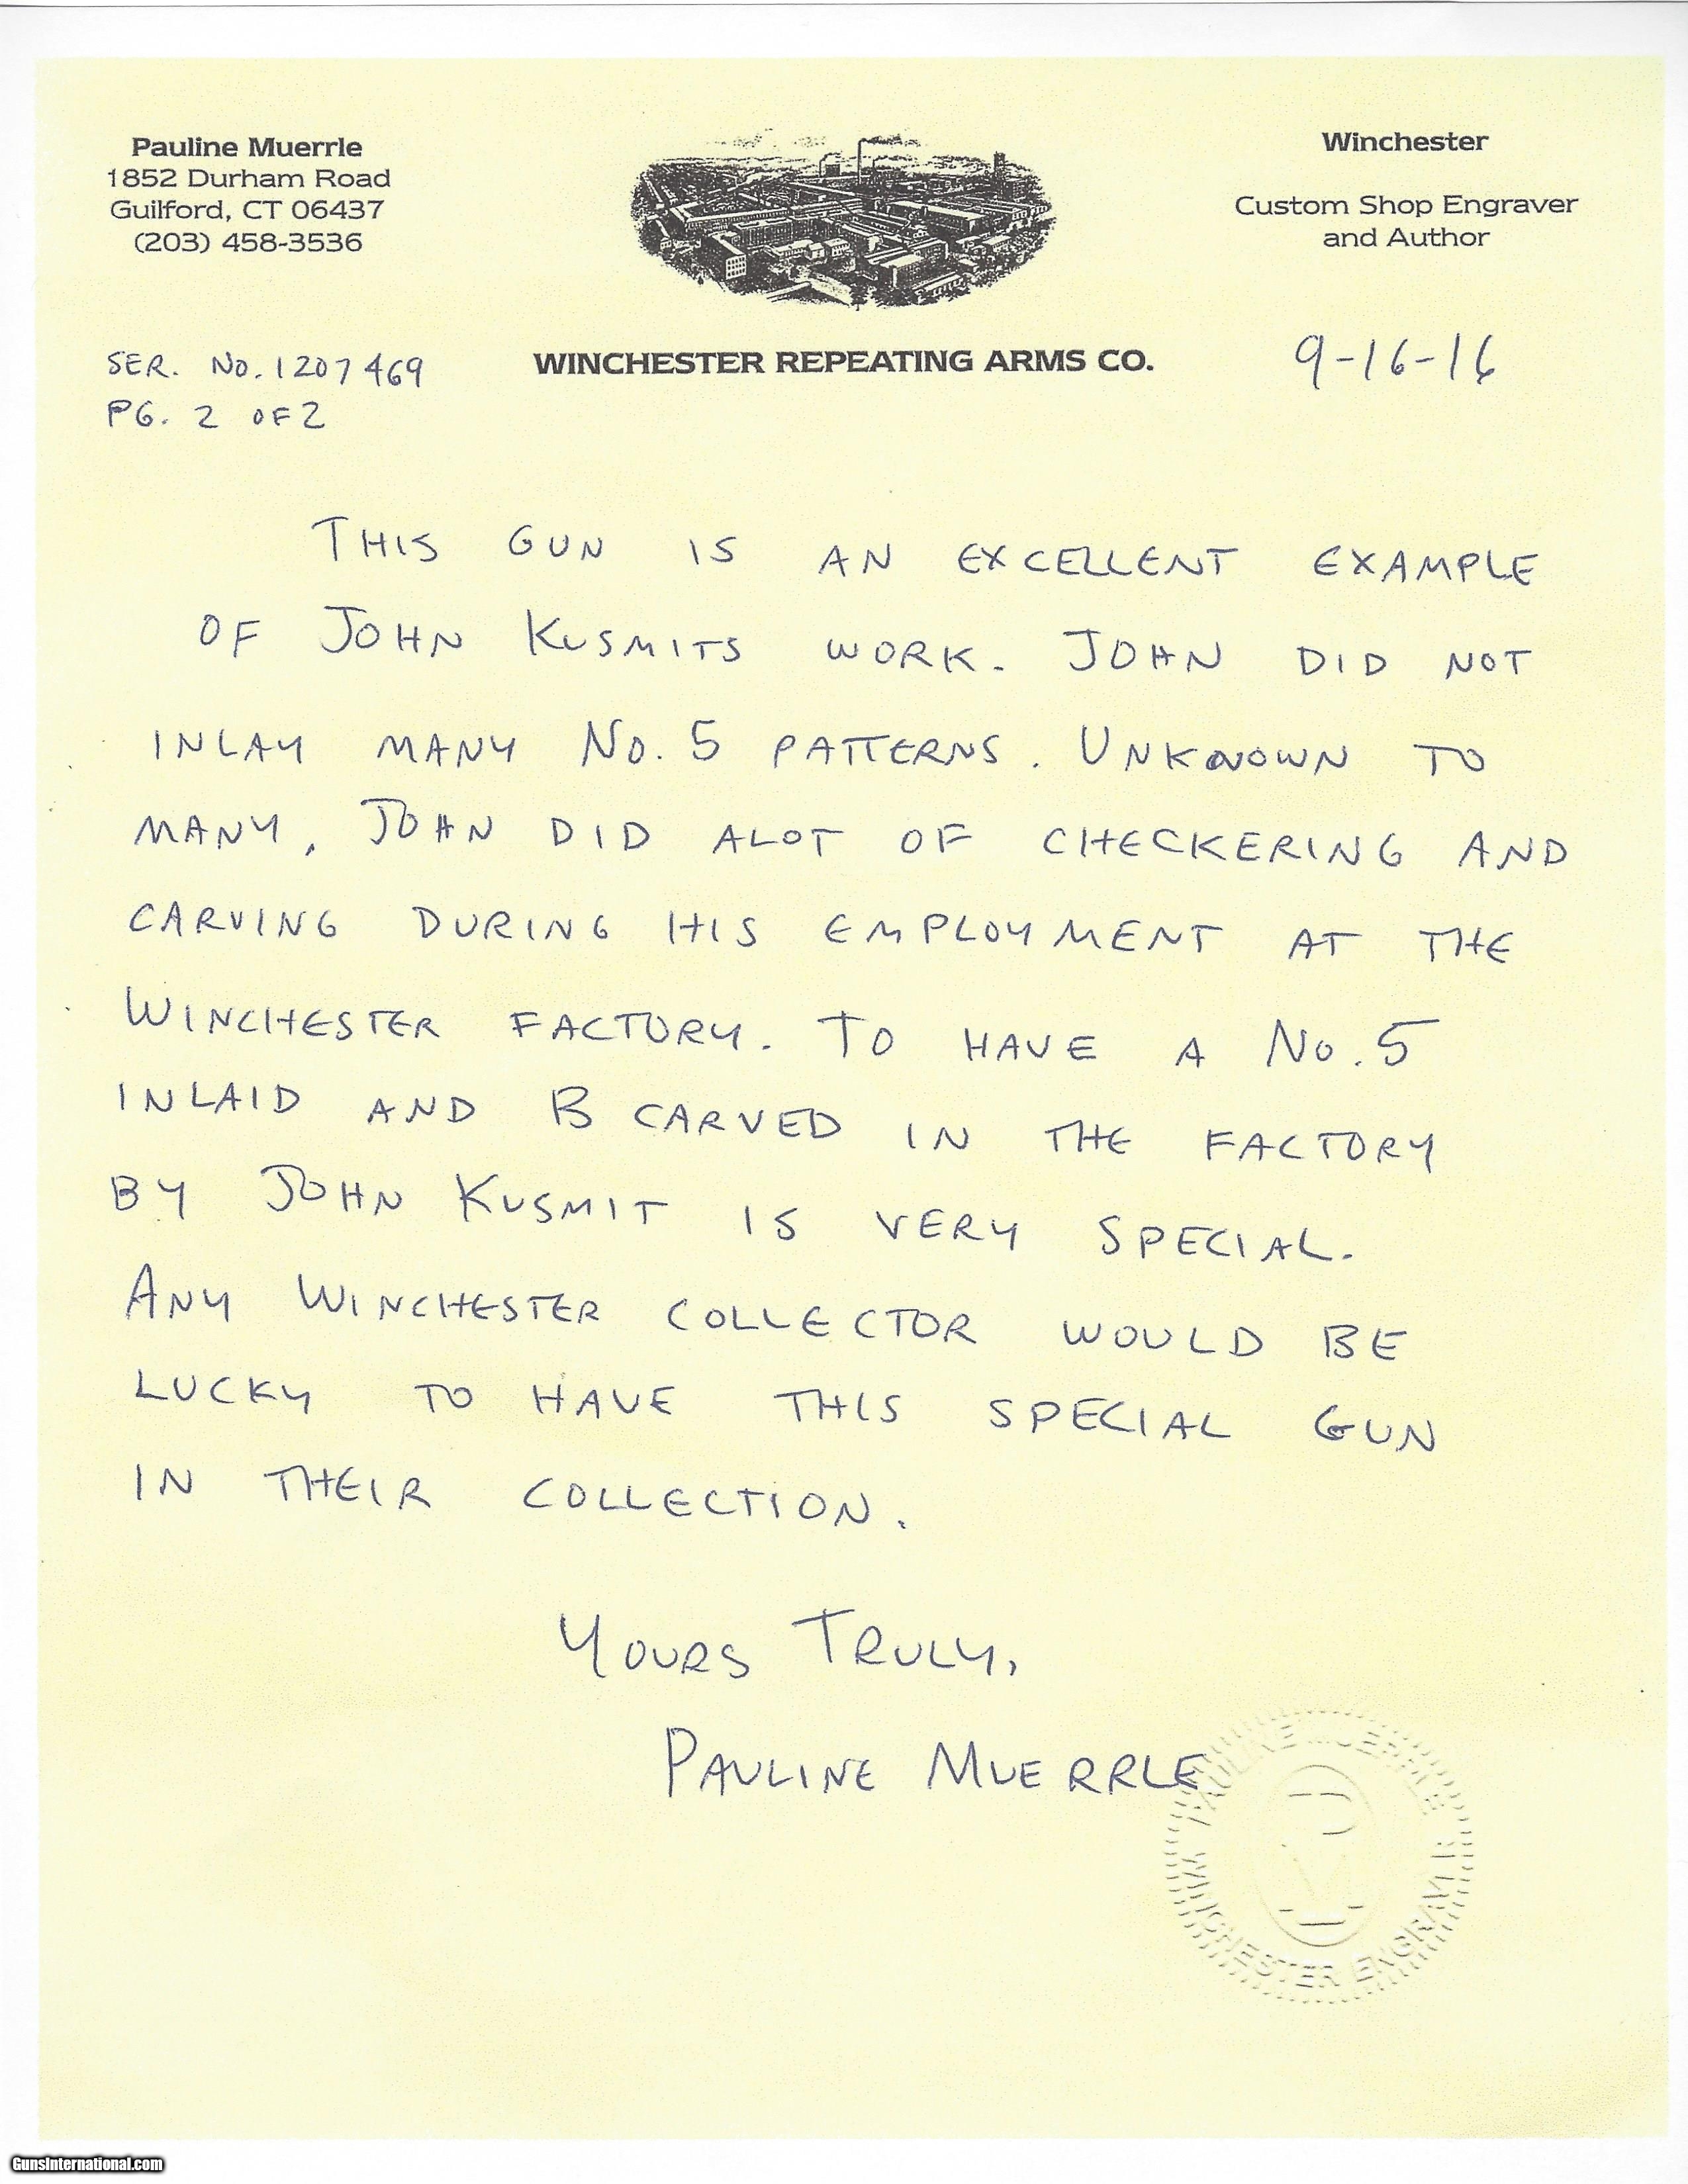 Pauline Muerrle
1852 Durham Road
Guilford, CT 06437
(203) 458-3536
Winchester
Custom Shop Engraver
and Author
WINCHESTER REPEATING ARMS CO.
SER. NO. 1207469
PG. 2 OF 2
9-16-16
THIS GUN IS AN EXCELLENT EXAMPLE
OF JOHN KUSMITS WORK. JOHN DID NOT
INLAY MANY NO. 5 PATTERNS. UNKNOWN TO
MANY, JOHN DID ALOT OF CHECKERING AND
CARVING DURING HIS EMPLOYMENT AT THE
WINCHESTER FACTORY. TO HAVE A NO. 5
INLAID AND B CARVED IN THE FACTORY
BY JOHN KUSMIT IS VERY SPECIAL.
ANY WINCHESTER COLLECTOR WOULD BE
LUCKY TO HAVE THIS SPECIAL GUN
IN THEIR COLLECTION.
YOURS TRULY,
PAULINE MUERRLE
PAULINE MUERRLE
PM
WINCHESTER ENGRAVER
GunsInternational.com